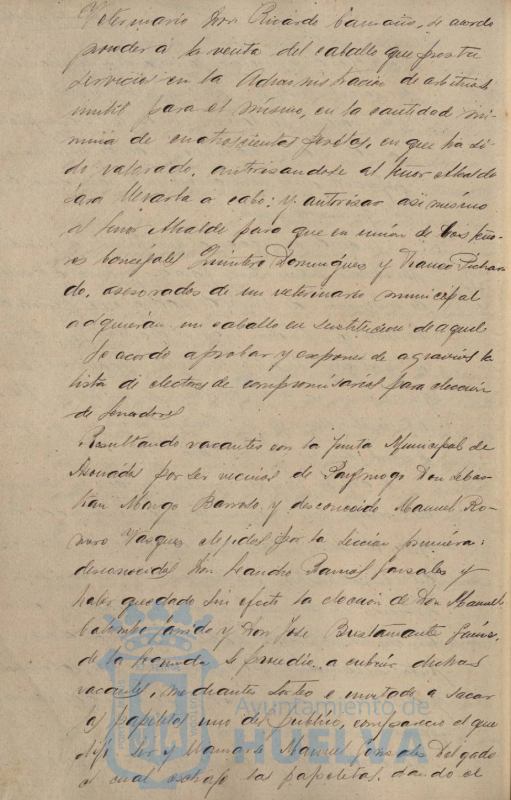 Veterinario Don Ricardo Camaño, se acordo
proceder á la venta del caballo que presta
servicios en la Administracion de arbitrios
inutil para el mismo, en la cantidad mi-
nima de cuatrocientas pesetas, en que ha si-
do valorado, autorisandose al Señor Alcalde
para llevarla a cabo: y autorisar asi mismo
al Señor Alcalde para que en union de los Seño-
res Concejales Quintero Dominguez y Franco
do, asesorados de un veterinario municipal
adquieran un caballo en sustitucion de aquel
Se acordo aprobar y exponer de agravios la
lista de electores de compromisarios para eleccion
de Senadores
Resultando vacantes en la Junta Municipal de
Asociados por ser vecinos de Paymogo Don Sebas-
tian Margo Barroso, y desconocido Manuel Ro-
mero Vasquez elejidos por la Seccion primera:
desconocidos Don Leandro Ramos y
haber quedado sin efecto la eleccion de Don Manuel
y Don Jose Bustamante
de la segunda se procedio a cubrir dichas
vacantes, mediante sorteo e invitado a sacar
las papeletas uno del publico, comparecio el que
dijo ser y llamarse Manuel Gonsales Delgado
el cual extrajo las papeletas, dando el
Ayuntamiento de
HUELVA